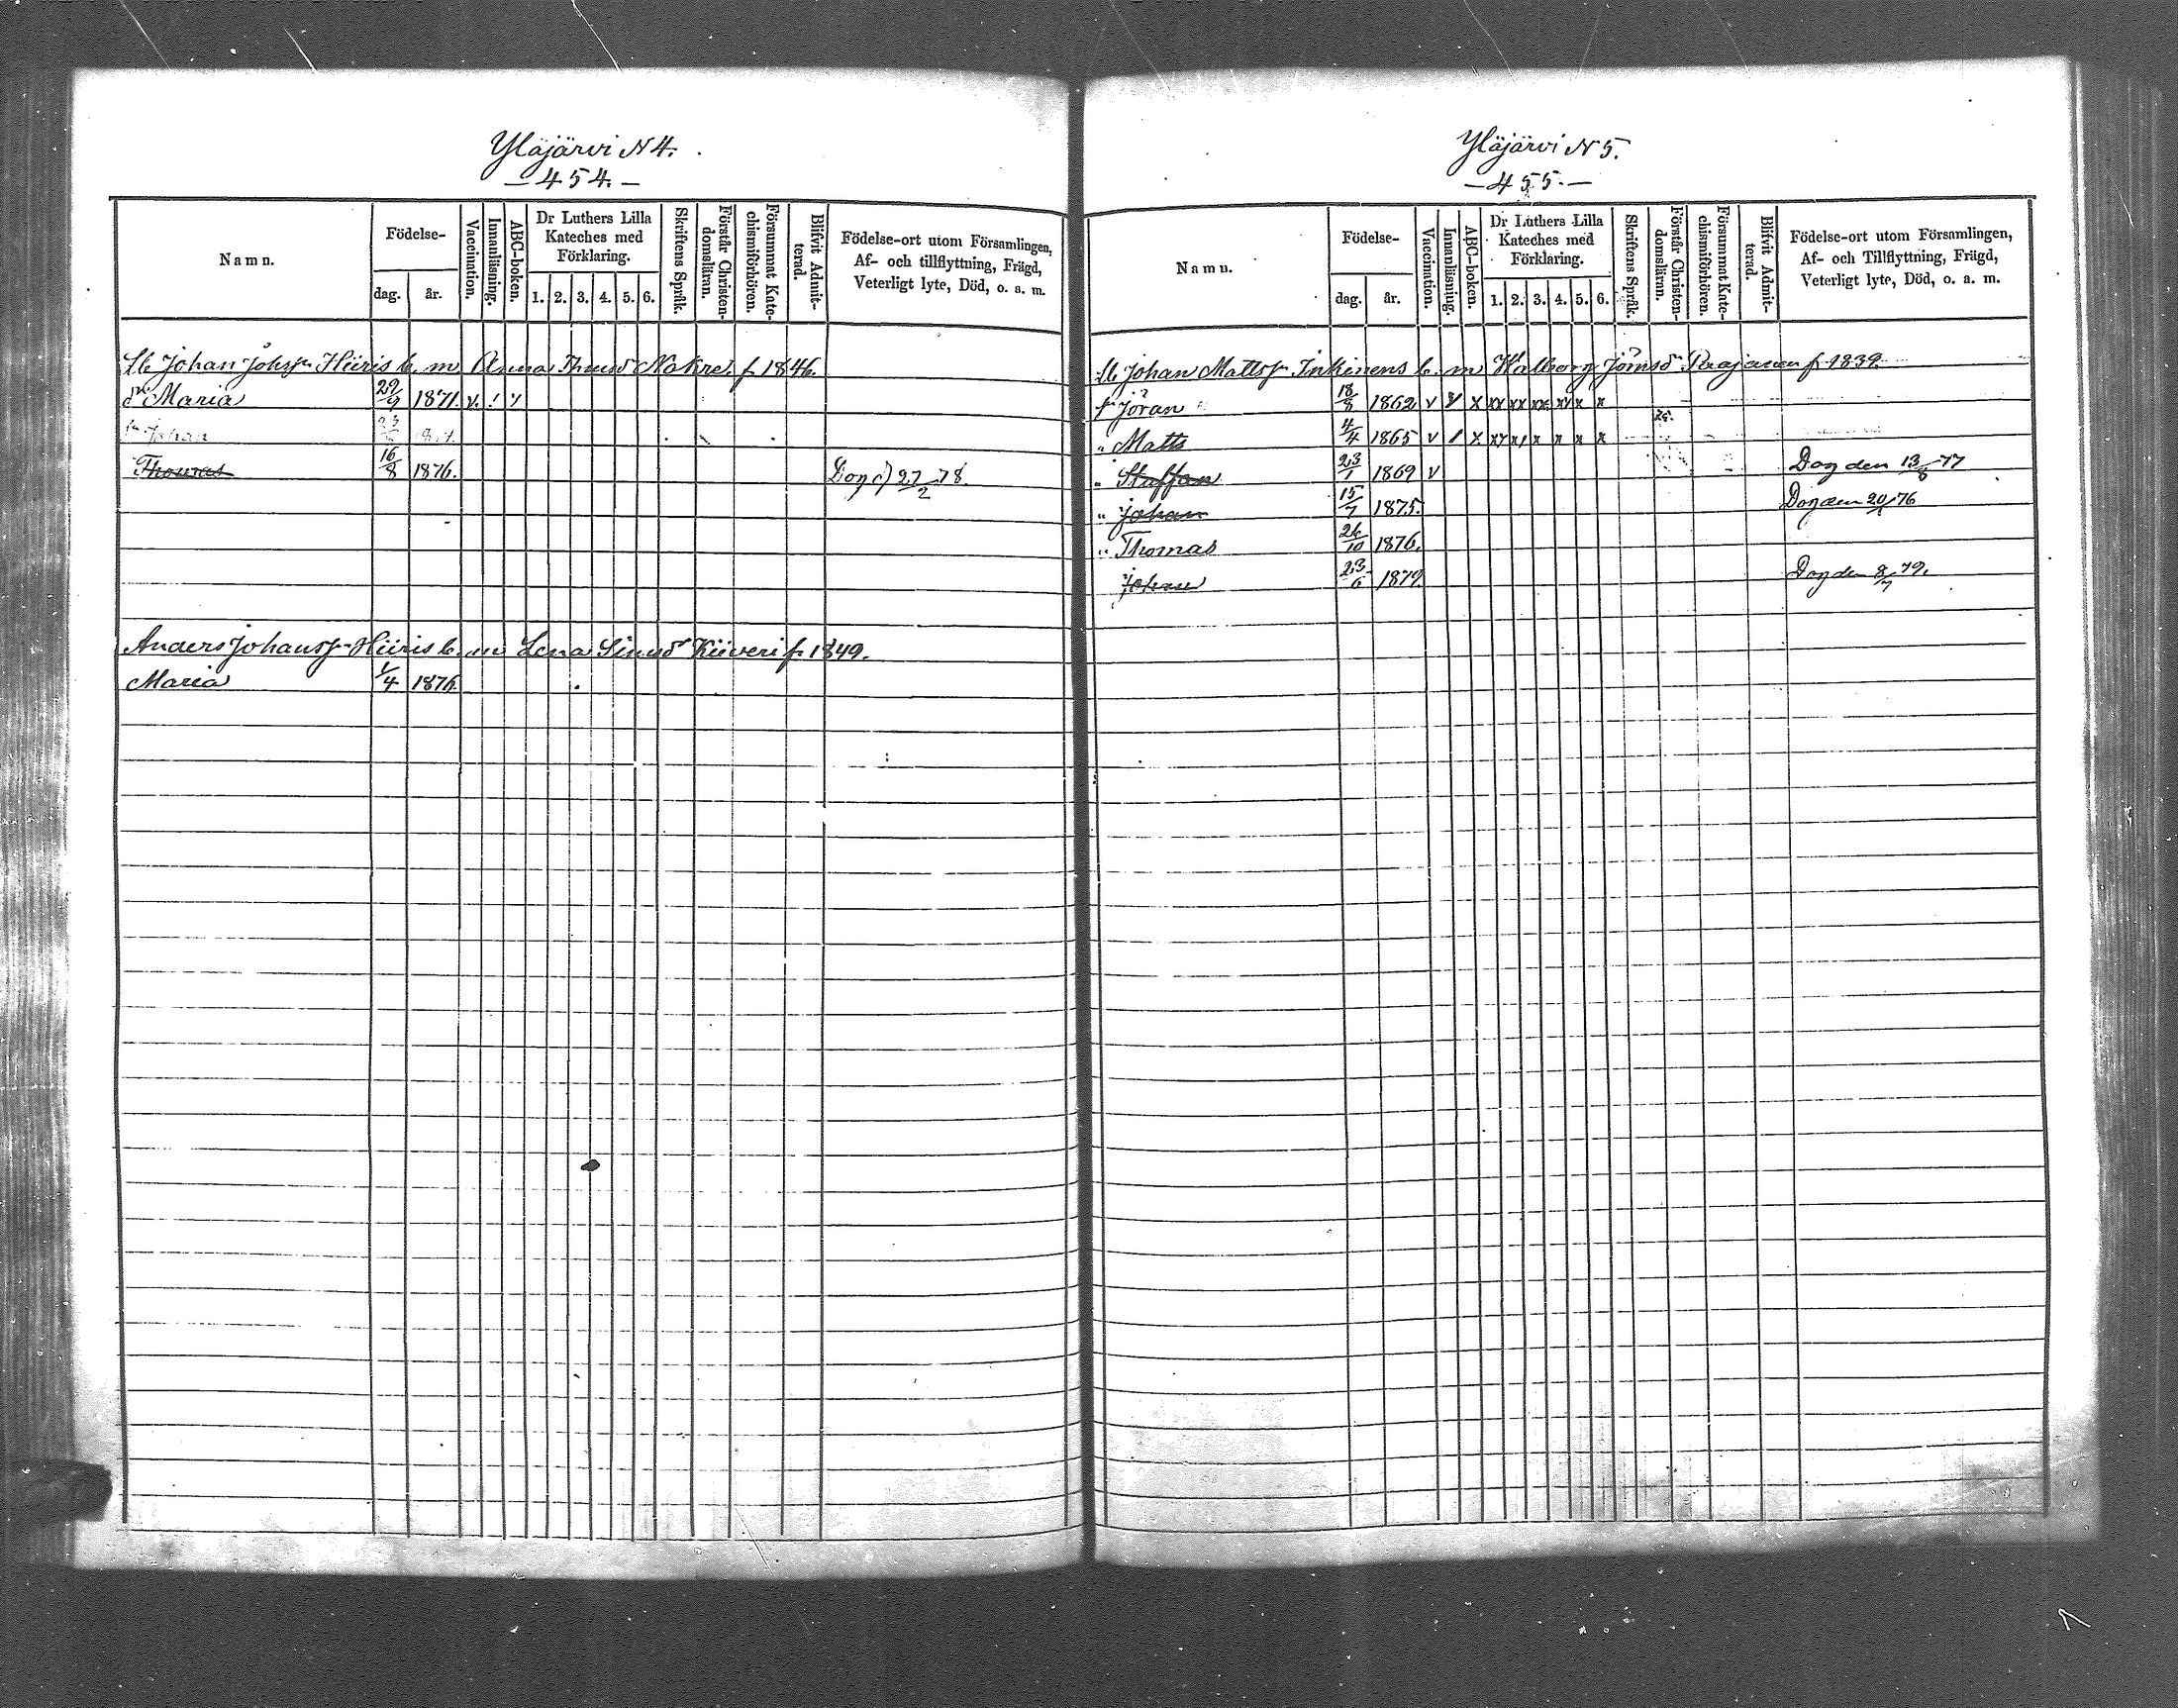 Yläjärvi N 4.
— 454. —
Namn.
Födelse-
dag.
år.
Vaccination.
Innanläsning.
ABC-boken.
Dr Luthers Lilla
Kateches med
Förklaring.
1. 2. 3. 4. 5. 6.
Skriftens Språk.
Förstår Christen-
domsläran.
Försummat Kate-
chismiförhören.
Blifvit Admit-
terad.
Födelse-ort utom Församlingen,
Af- och tillflyttning, Frägd,
Veterligt lyte, Död, o. a. m.
Johan Hiiris b. m Anna Nokre f 1846.
Maria 1871. v
Johan
Thomas 16/8 1876. Dog d 27/2 78.
Anders Johanss Hiiris b. m Lena Simsd Kiiveri f 1849.
Maria 1/4 1876.
Yläjärvi N 5.
— 455. —
Namn.
Födelse-
dag.
år.
Vaccination.
Innanläsning.
ABC-boken.
Dr Luthers Lilla
Kateches med
Förklaring.
1. 2. 3. 4. 5. 6.
Skriftens Språk.
Förstår Christen-
domsläran.
Försummat Kate-
chismiförhören.
Blifvit Admit-
terad.
Födelse-ort utom Församlingen,
Af- och Tillflyttning, Frägd,
Veterligt lyte, Död, o. a. m.
Johan Matts Inkinens b. m Walborg f 1839.
Jöran 18/8 1862 v v x xx xx xx xv x x
" Matts 4/4 1865 v / x xx x/ x x x x
" Staffan 23/1 1869 v Dog den 13/8 77
" Johan 15/7 1875. Dog den 76
" Thomas 26/10 1876.
Johan 23/6 1879. Dog den 8/7 79.